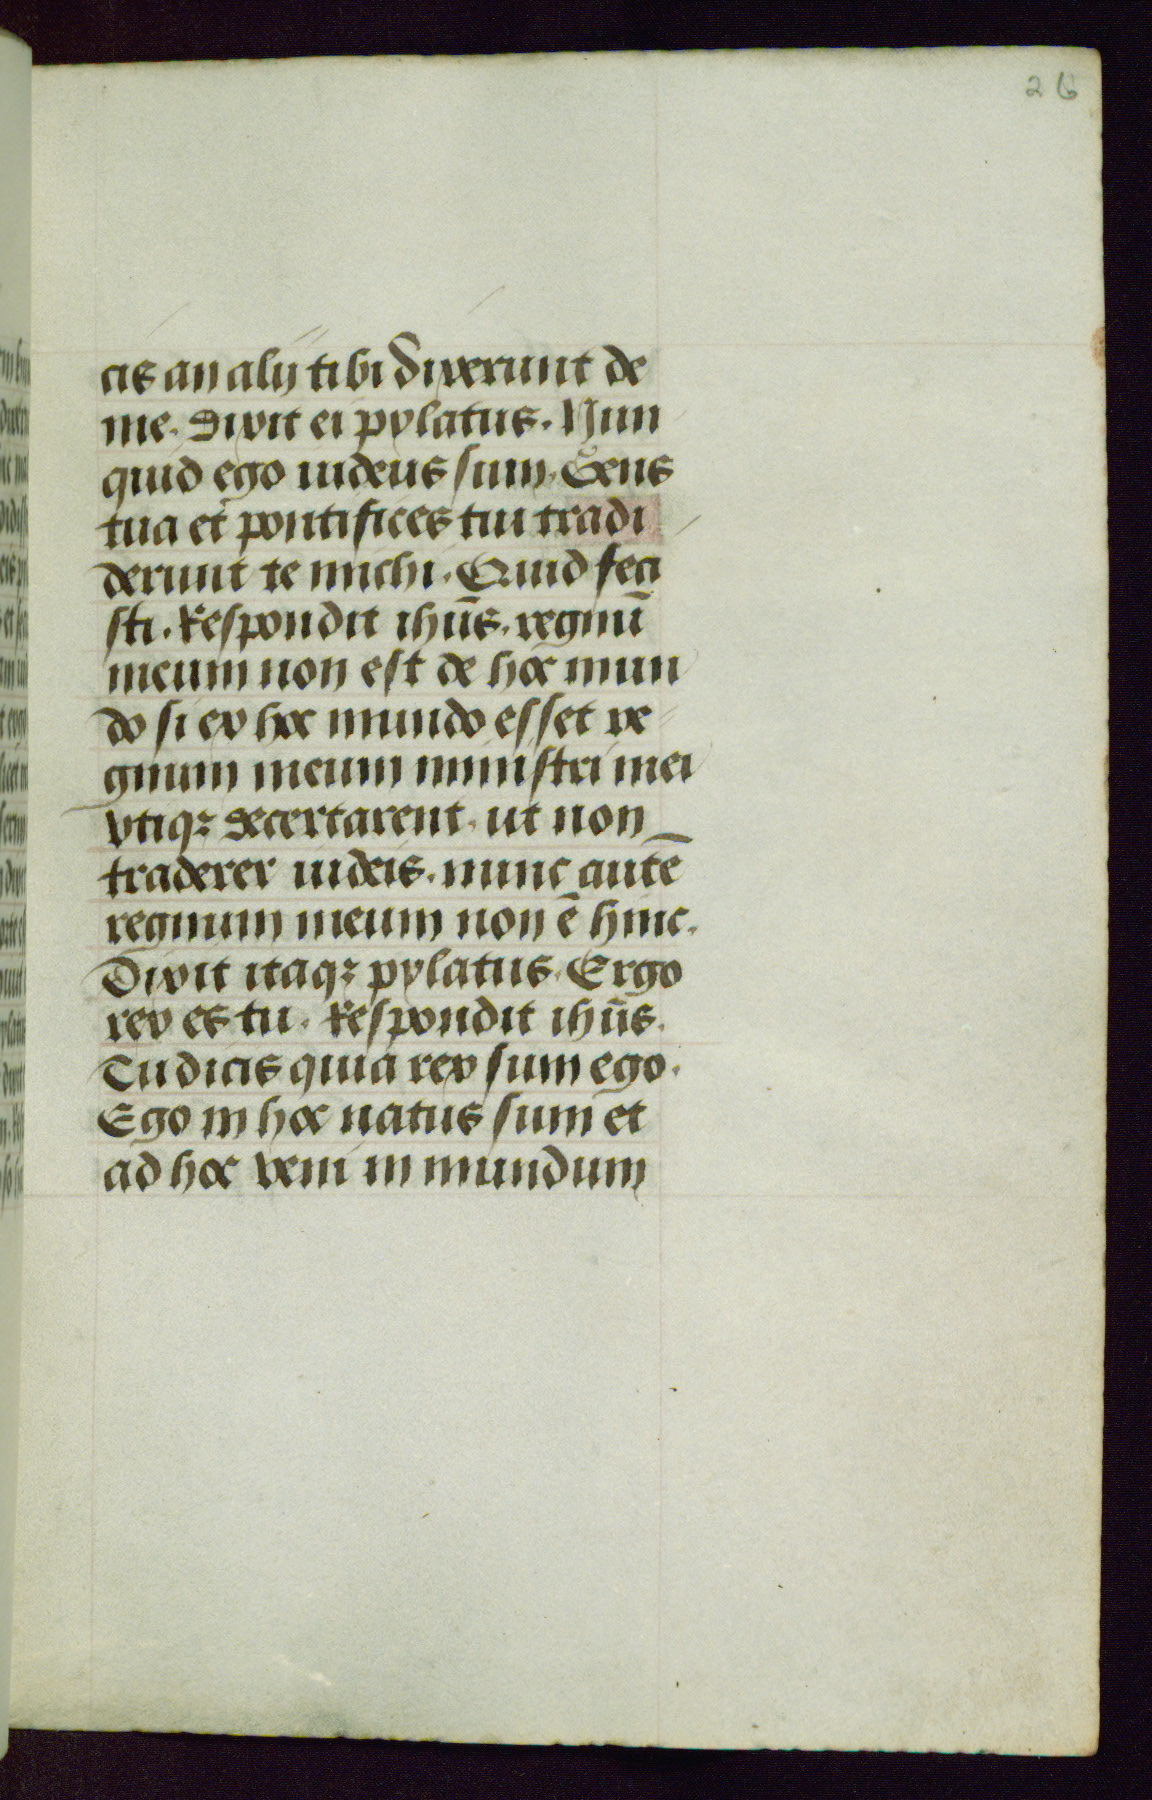 26
cis an alij tibi dixerunt de
me. Dixit ei pylatus. Nun
quid ego iudeus sum. Gens
tua et pontifices tui tradi
derunt te michi. Quid feci
sti. Respondit ihūs. regnū
meum non est de hoc mun
do si ex hoc mundo esset re
gnum meum ministri mei
vtiqꝫ decertarent. ut non
traderer iudeis. nunc autē
regnum meum non ē hinc.
Dixit itaqꝫ pylatus. Ergo
rex es tu. Respondit ihūs.
Tu dicis quia rex sum ego.
Ego in hoc natus sum et
ad hoc veni in mundum